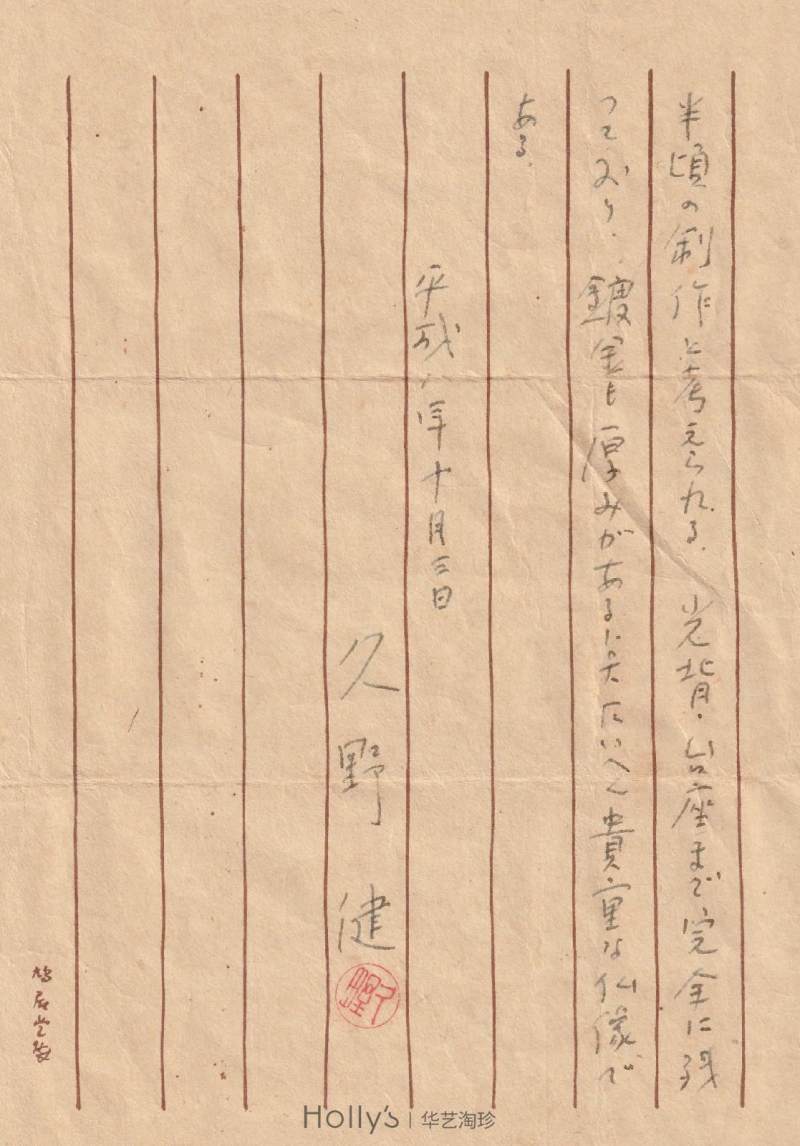 半頃の制作と考えられる。光背・台座まで完全に残
っており、鍍金も厚みがあるに実にたいへん貴重な仏像で
ある。
平成八年十月三日
久野健
鳩居堂製
Holly's 华艺淘珍